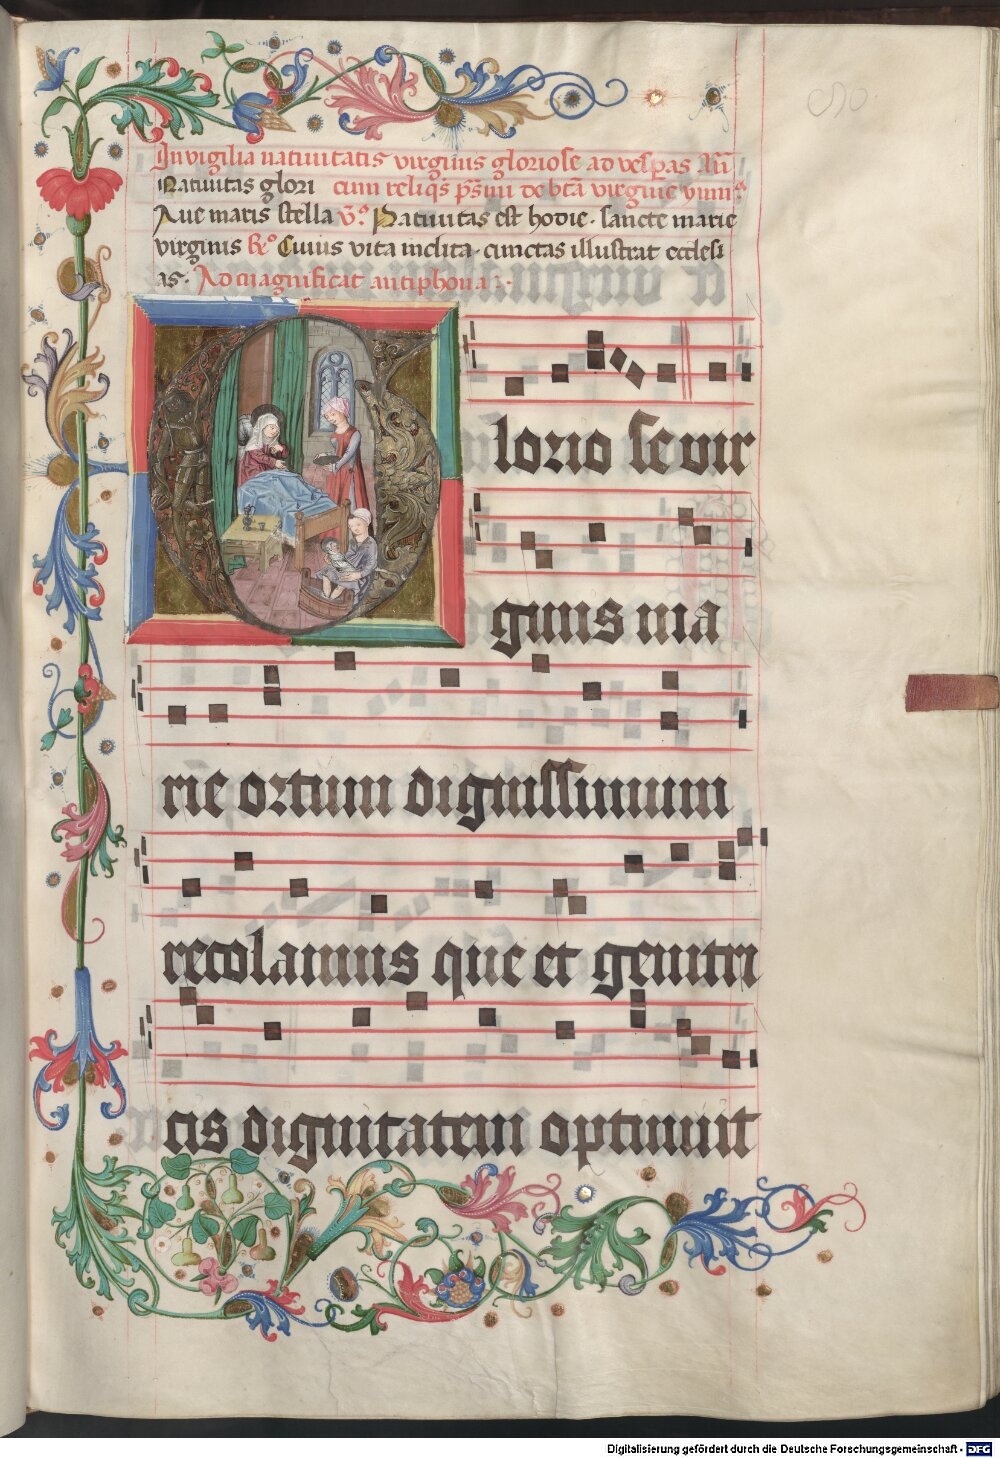 In vigilia natiuitatis virginis gloriose ad vesꝑas Añ
Natiuitas glori cum reliqs̄ ps̄mi de btā virgine ymnꝰ
Aue maris stella v̄ꝰ Natiuitas est hodie · sancte marie
virginis Rꝰ Cuius vita inclita · cunctas illustrat ecclesi
as · Ad magnificat antiphona ·
G lorio se vir
ginis ma
rie ortum dignissimum
recolamus que et genitri
cis dignitatem optinuit
Digitalisierung gefördert durch die Deutsche Forschungsgemeinschaft - DFG